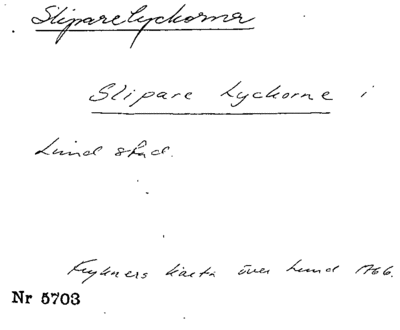 Slipare Lyckorna
Slipare Lyckorne i
Lund stad.
Frykners karta över Lund 1766.
Nr 5703